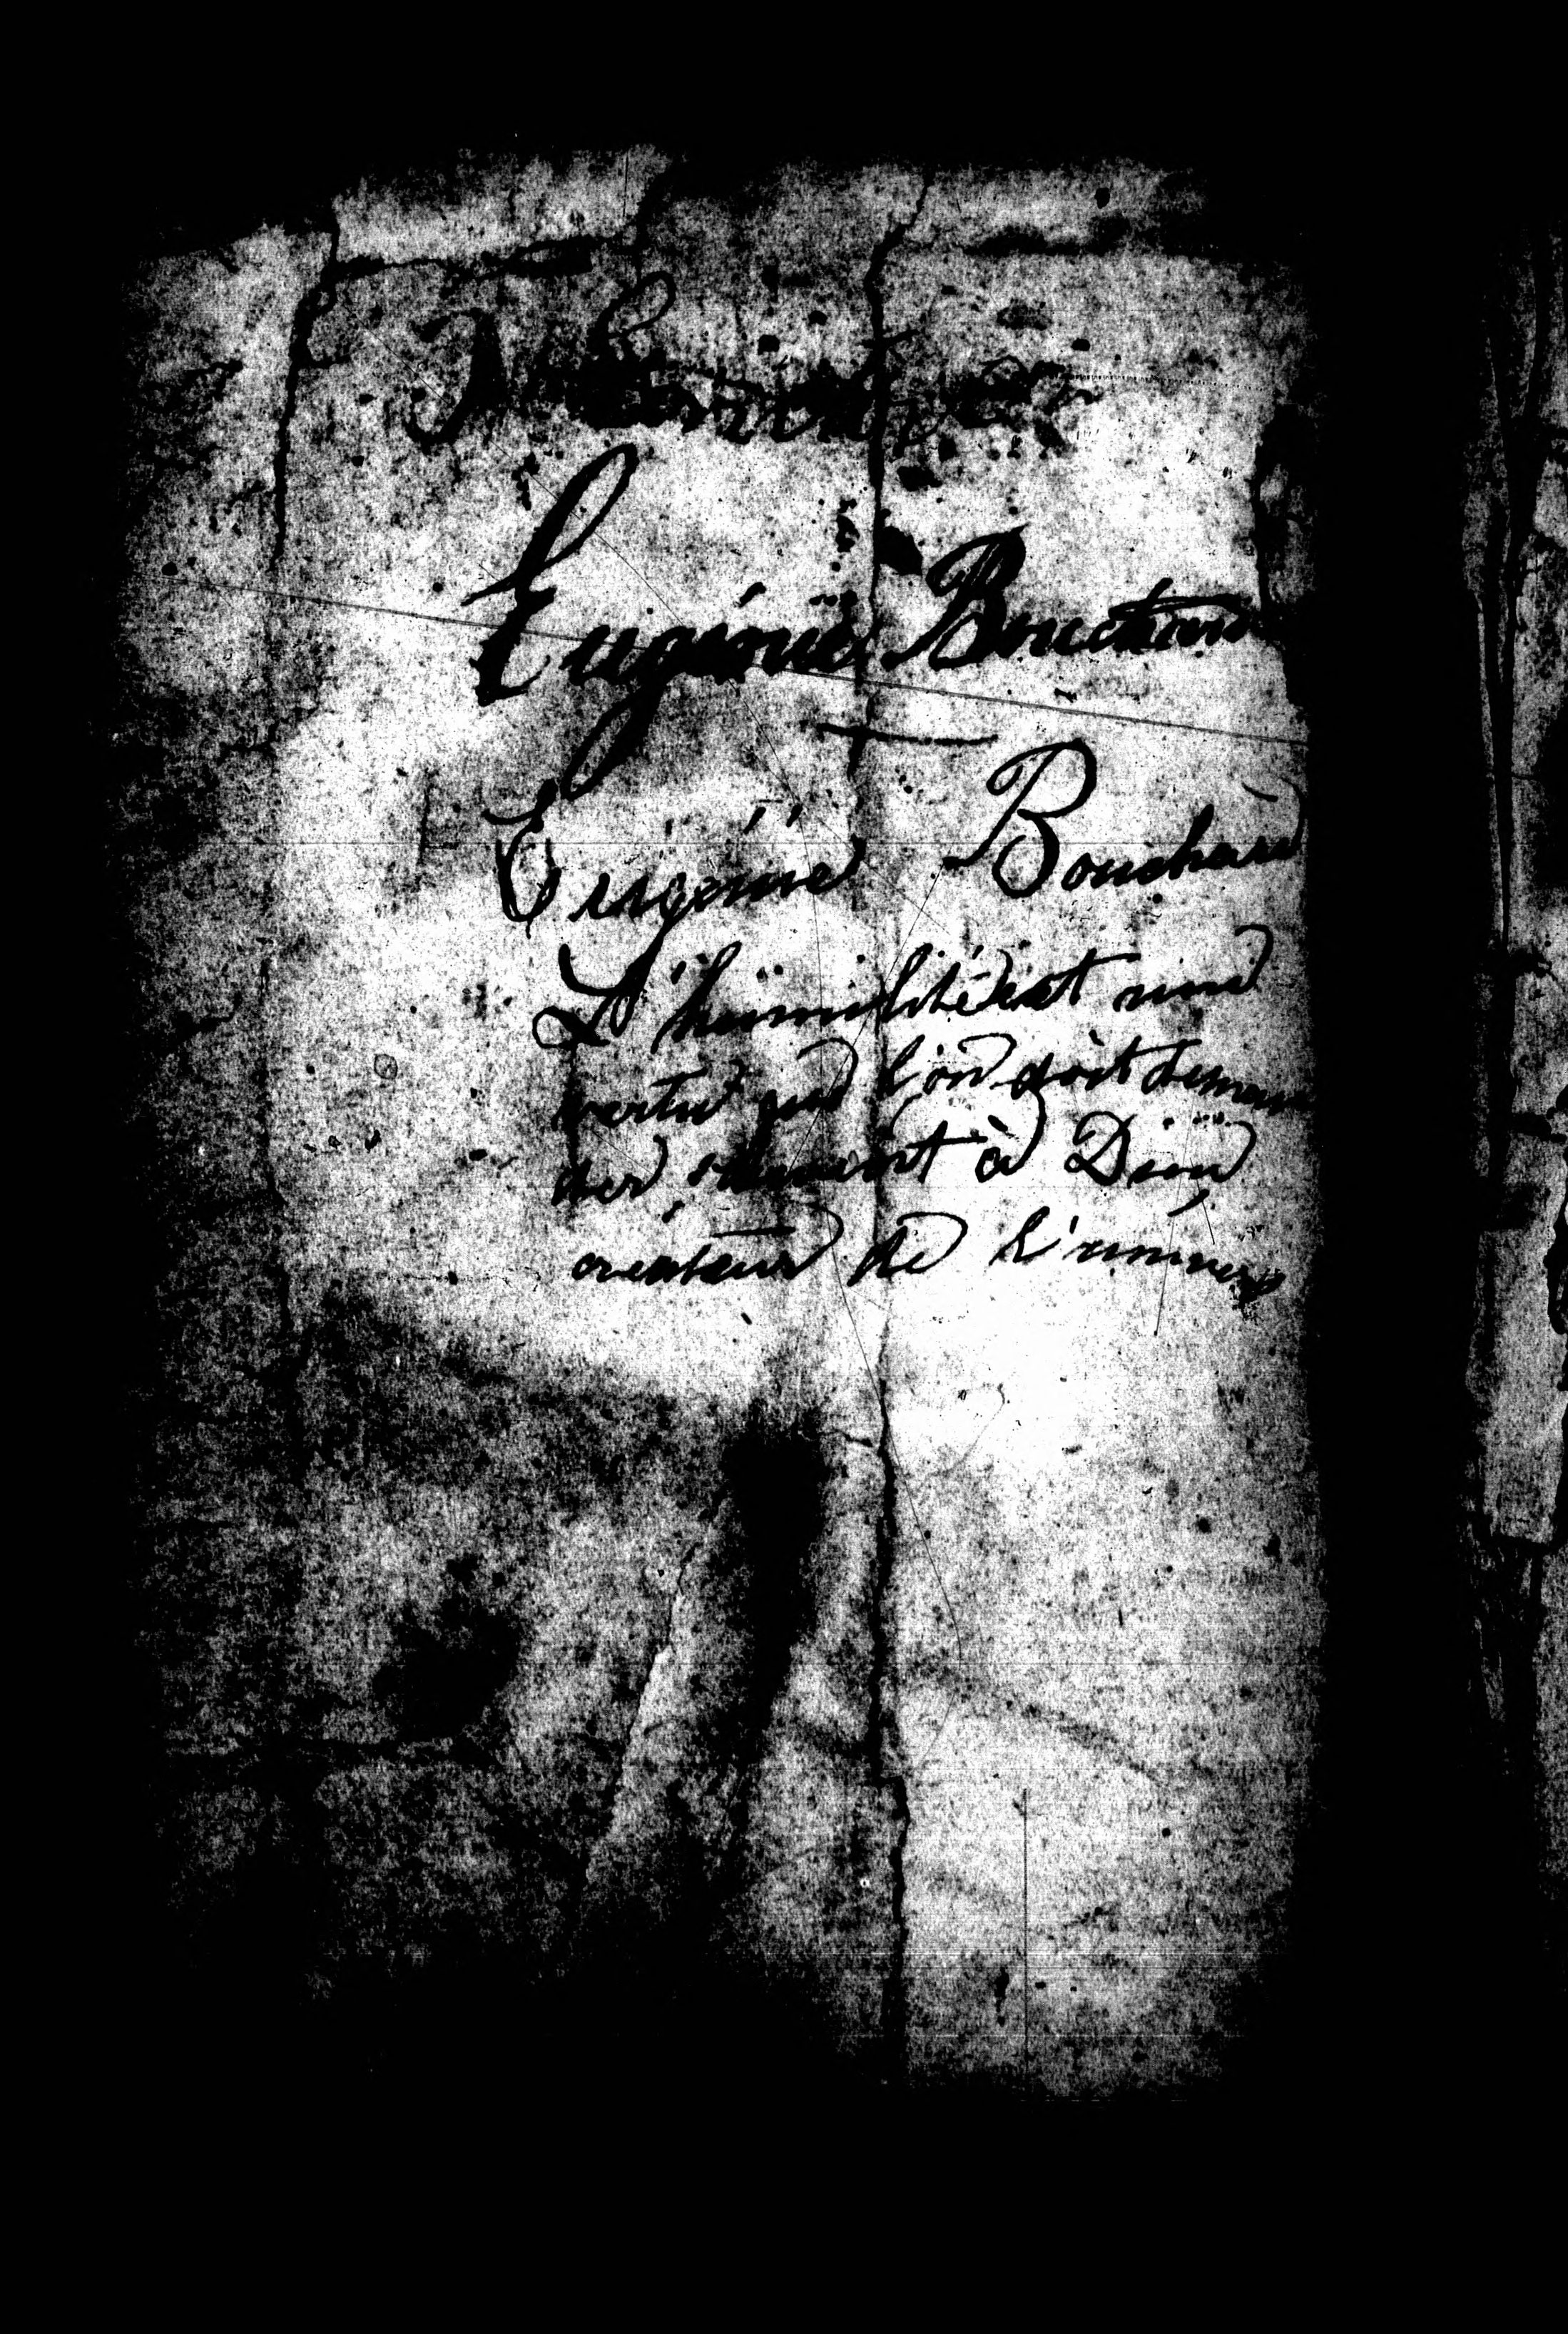 Eugénie Bouchard
Eugénie Bouchard
L'humilité est une
vertu que l'on doit deman
der souvent à Dieu
créateur de l'univers